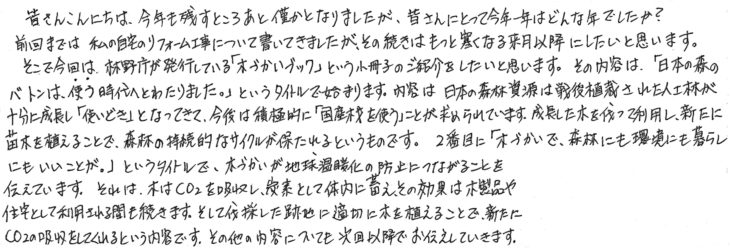 皆さんこんにちは、今年も残すところあと僅かとなりましたが、皆さんにとって今年一年はどんな年でしたか？
前回までは私の自宅のリフォーム工事について書いてきましたが、その続きはもっと寒くなる来月以降にしたいと思います。
そこで今回は、林野庁が発行している「木づかいブック」という小冊子のご紹介をしたいと思います。その内容は、「日本の森の
バトンは、使う時代へとわたりました。」というタイトルで始まります。内容は日本の森林資源は戦後植裁された人工林が
十分に成長し「使いどき」となってきて、今後は積極的に「国産材を使う」ことが求められています。成長した木を伐って利用し、新たに
苗木を植えることで、森林の持続的なサイクルが保たれるというものです。 2番目に「木づかいで、森林にも環境にも暮らし
にもいいことが。」というタイトルで、木づかいが地球温暖化の防止につながることを
伝えています。それは、木はCO2を吸収し、炭素として体内に蓄え、その効果は木製品や
住宅として利用される間も続きます。そして伐採した跡地に適切に木を植えることで、新たに
CO2の吸収をしてくれるという内容です。その他の内容についても次回以降でお伝えしていきます。